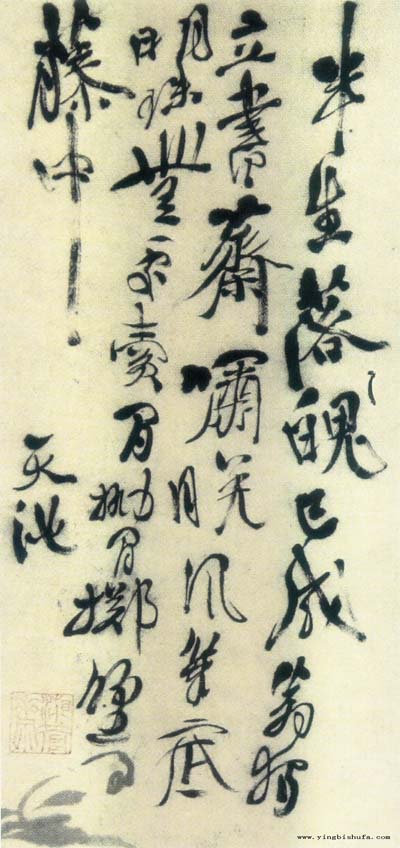 半生落魄已成翁獨
立書齋嘯晚風筆底
明珠無處賣閒拋閒擲野
藤中
天池
www.yingbishufa.com